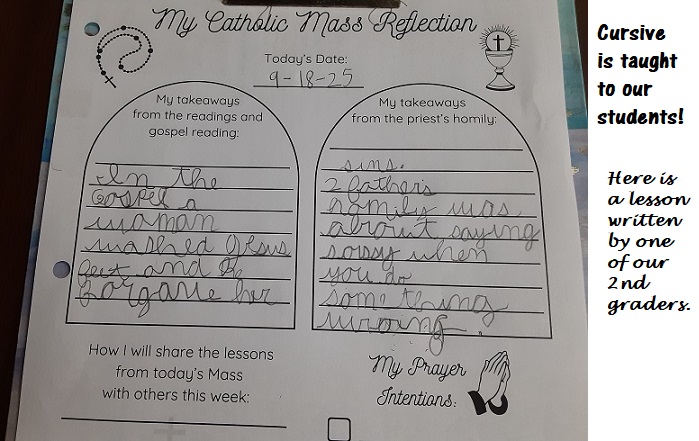 My Catholic Mass Reflection
Today's Date:
9-18-25
My takeaways
from the readings and
gospel reading:
In the
Gospel a
woman
washed Jesus
feet and he
forgave her
My takeaways
from the priest's homily:
sins.
2 father's
homily was
about saying
sorry when
you do
something
wrong.
How I will share the lessons
from today's Mass
with others this week:
My Prayer
Intentions:
Cursive
is taught
to our
students!
Here is
a lesson
written
by one
of our
2nd
graders.